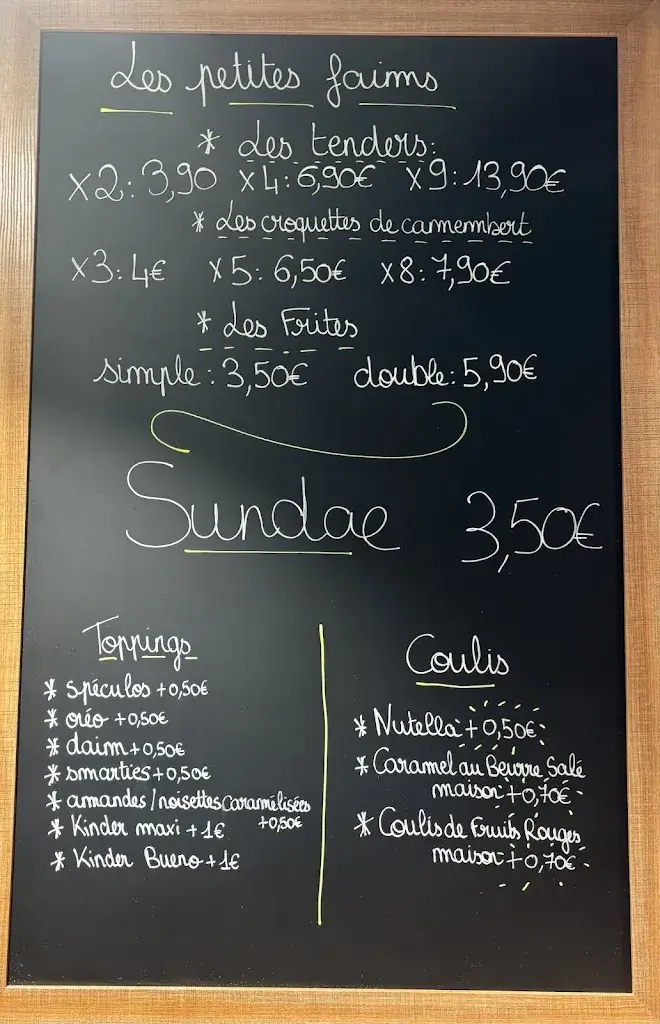 Les petites faims
* Les tenders:
x2: 3,90 x4: 6,90€ x9: 13,90€
* Les croquettes de camembert
x3: 4€ x5: 6,50€ x8: 7,90€
* Les Frites
simple: 3,50€ double: 5,90€
Sundae 3,50€
Toppings
* spéculos +0,50€
* oréo +0,50€
* daim +0,50€
* smarties +0,50€
* amandes/noisettes caramélisées
+0,50€
* Kinder maxi +1€
* Kinder Bueno +1€
Coulis
* Nutella +0,50€
* Caramel au Beurre Salé
maison +0,70€
* Coulis de Fruits Rouges
maison +0,70€